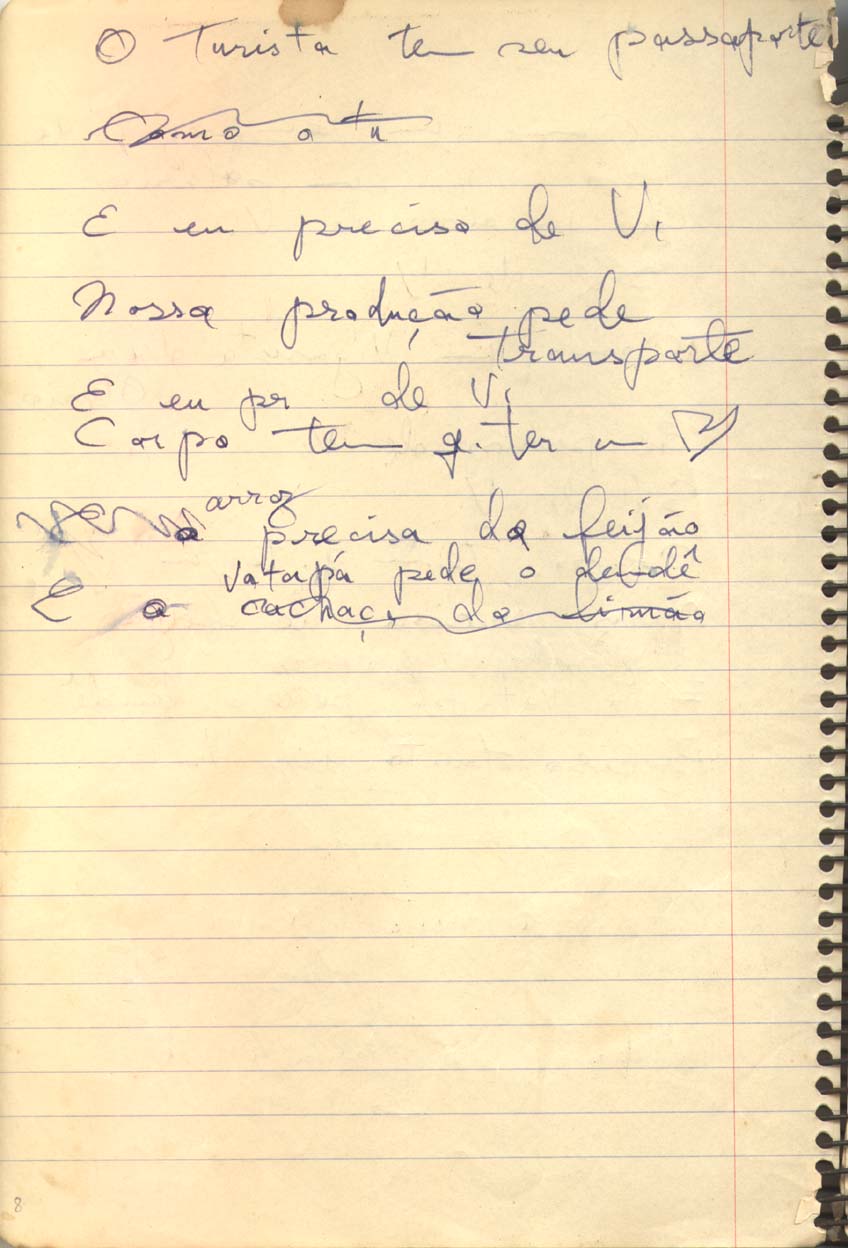 O Turista tem seu passaporte
Como o tu
E eu preciso de V.
Nossa produção pede
transporte
E eu pr de V.
Corpo tem q. ter um
arroz
precisa do feijão
Vatapá pede o dendê
E a cachaça do limão
8